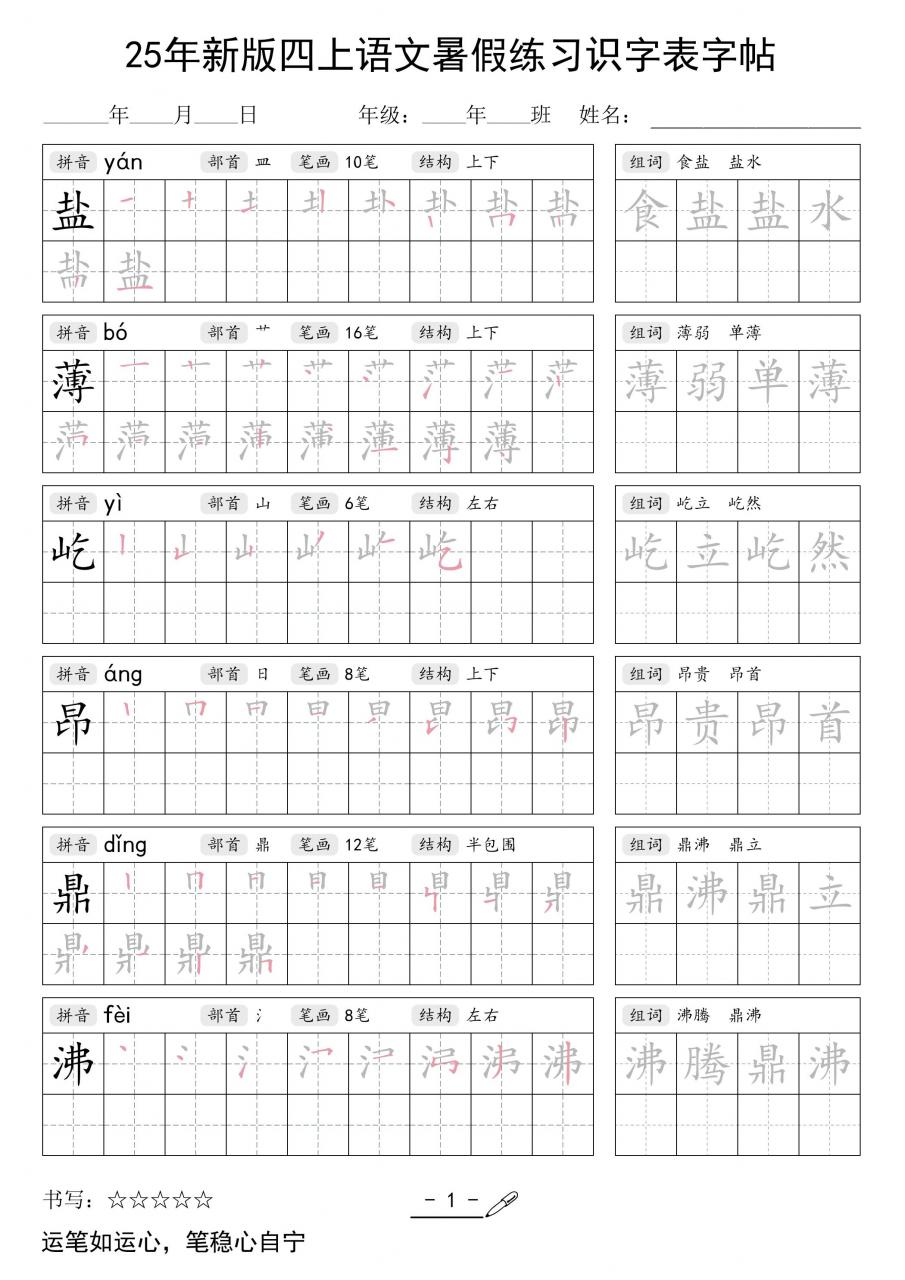 25年新版四上语文暑假练习识字表字帖
______年____月____日 年级：____年____班 姓名：____________________
拼音 yán 部首 皿 笔画 10笔 结构 上下 组词 食盐 盐水
盐 食盐盐水
拼音 bó 部首 艹 笔画 16笔 结构 上下 组词 薄弱 单薄
薄 薄弱单薄
拼音 yì 部首 山 笔画 6笔 结构 左右 组词 屹立 屹然
屹 屹立屹然
拼音 áng 部首 日 笔画 8笔 结构 上下 组词 昂贵 昂首
昂 昂贵昂首
拼音 dǐng 部首 鼎 笔画 12笔 结构 半包围 组词 鼎沸 鼎立
鼎 鼎沸鼎立
拼音 fèi 部首 氵 笔画 8笔 结构 左右 组词 沸腾 鼎沸
沸 沸腾鼎沸
书写：☆☆☆☆☆ - 1 -
运笔如运心，笔稳心自宁